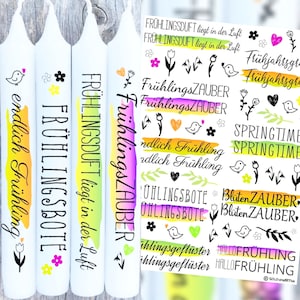 endlich Frühling
FRÜHLINGSBOTE
FRÜHLINGSDUFT liegt in der Luft
FrühlingsZAUBER
FRÜHLINGSDUFT liegt in der Luft
FRÜHLINGSDUFT liegt in der Luft
FrühlingsZAUBER
FrühlingsZAUBER
SPRINGTIME
SPRINGTIME
endlich Frühling
endlich Frühling
FRÜHLINGSBOTE
BlütenZAUBER
BlütenZAUBER
HALLO FRÜHLING
HALLO FRÜHLING